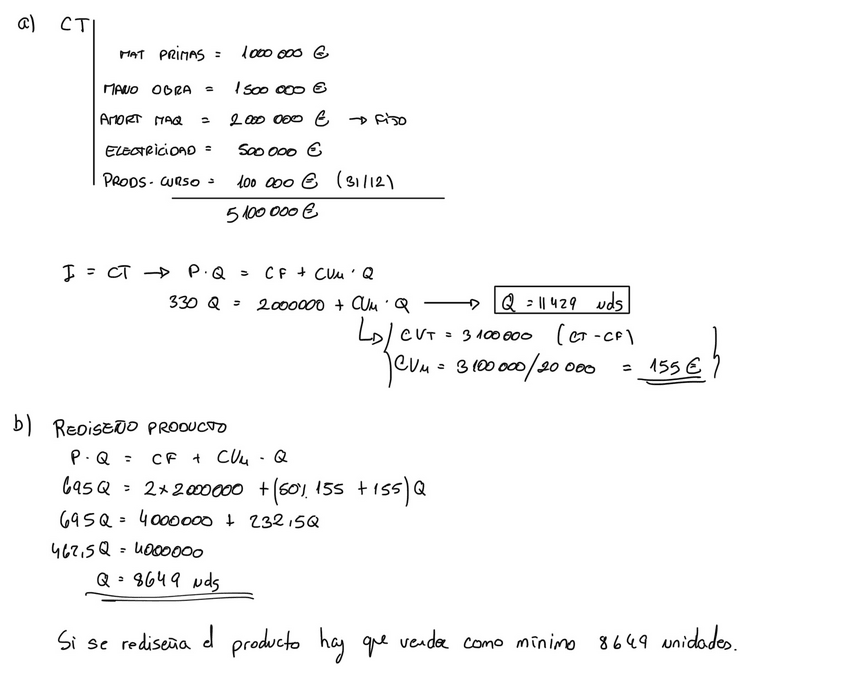 a) CT
MAT PRIMAS = 1000 000 €
MANO OBRA = 1 500 000 €
AMORT MAQ = 2 000 000 € → FIJO
ELECTRICIDAD = 500 000 €
PRODS. CURSO = 100 000 € (31/12)
5 100 000 €
I = CT → P·Q = CF + CVu · Q
330 Q = 2000000 + CVu · Q → Q = 11 429 uds
CVT = 3 100 000 (CT - CF)
CVu = 3 100 000/20 000 = 155 €
b) REDISEÑO PRODUCTO
P·Q = CF + CVu · Q
695Q = 2x2000000 + (50% 155 + 155)Q
695Q = 4000000 + 232,5Q
462,5Q = 4000000
Q = 8649 uds
Si se rediseña el producto hay que vender como mínimo 8649 unidades.